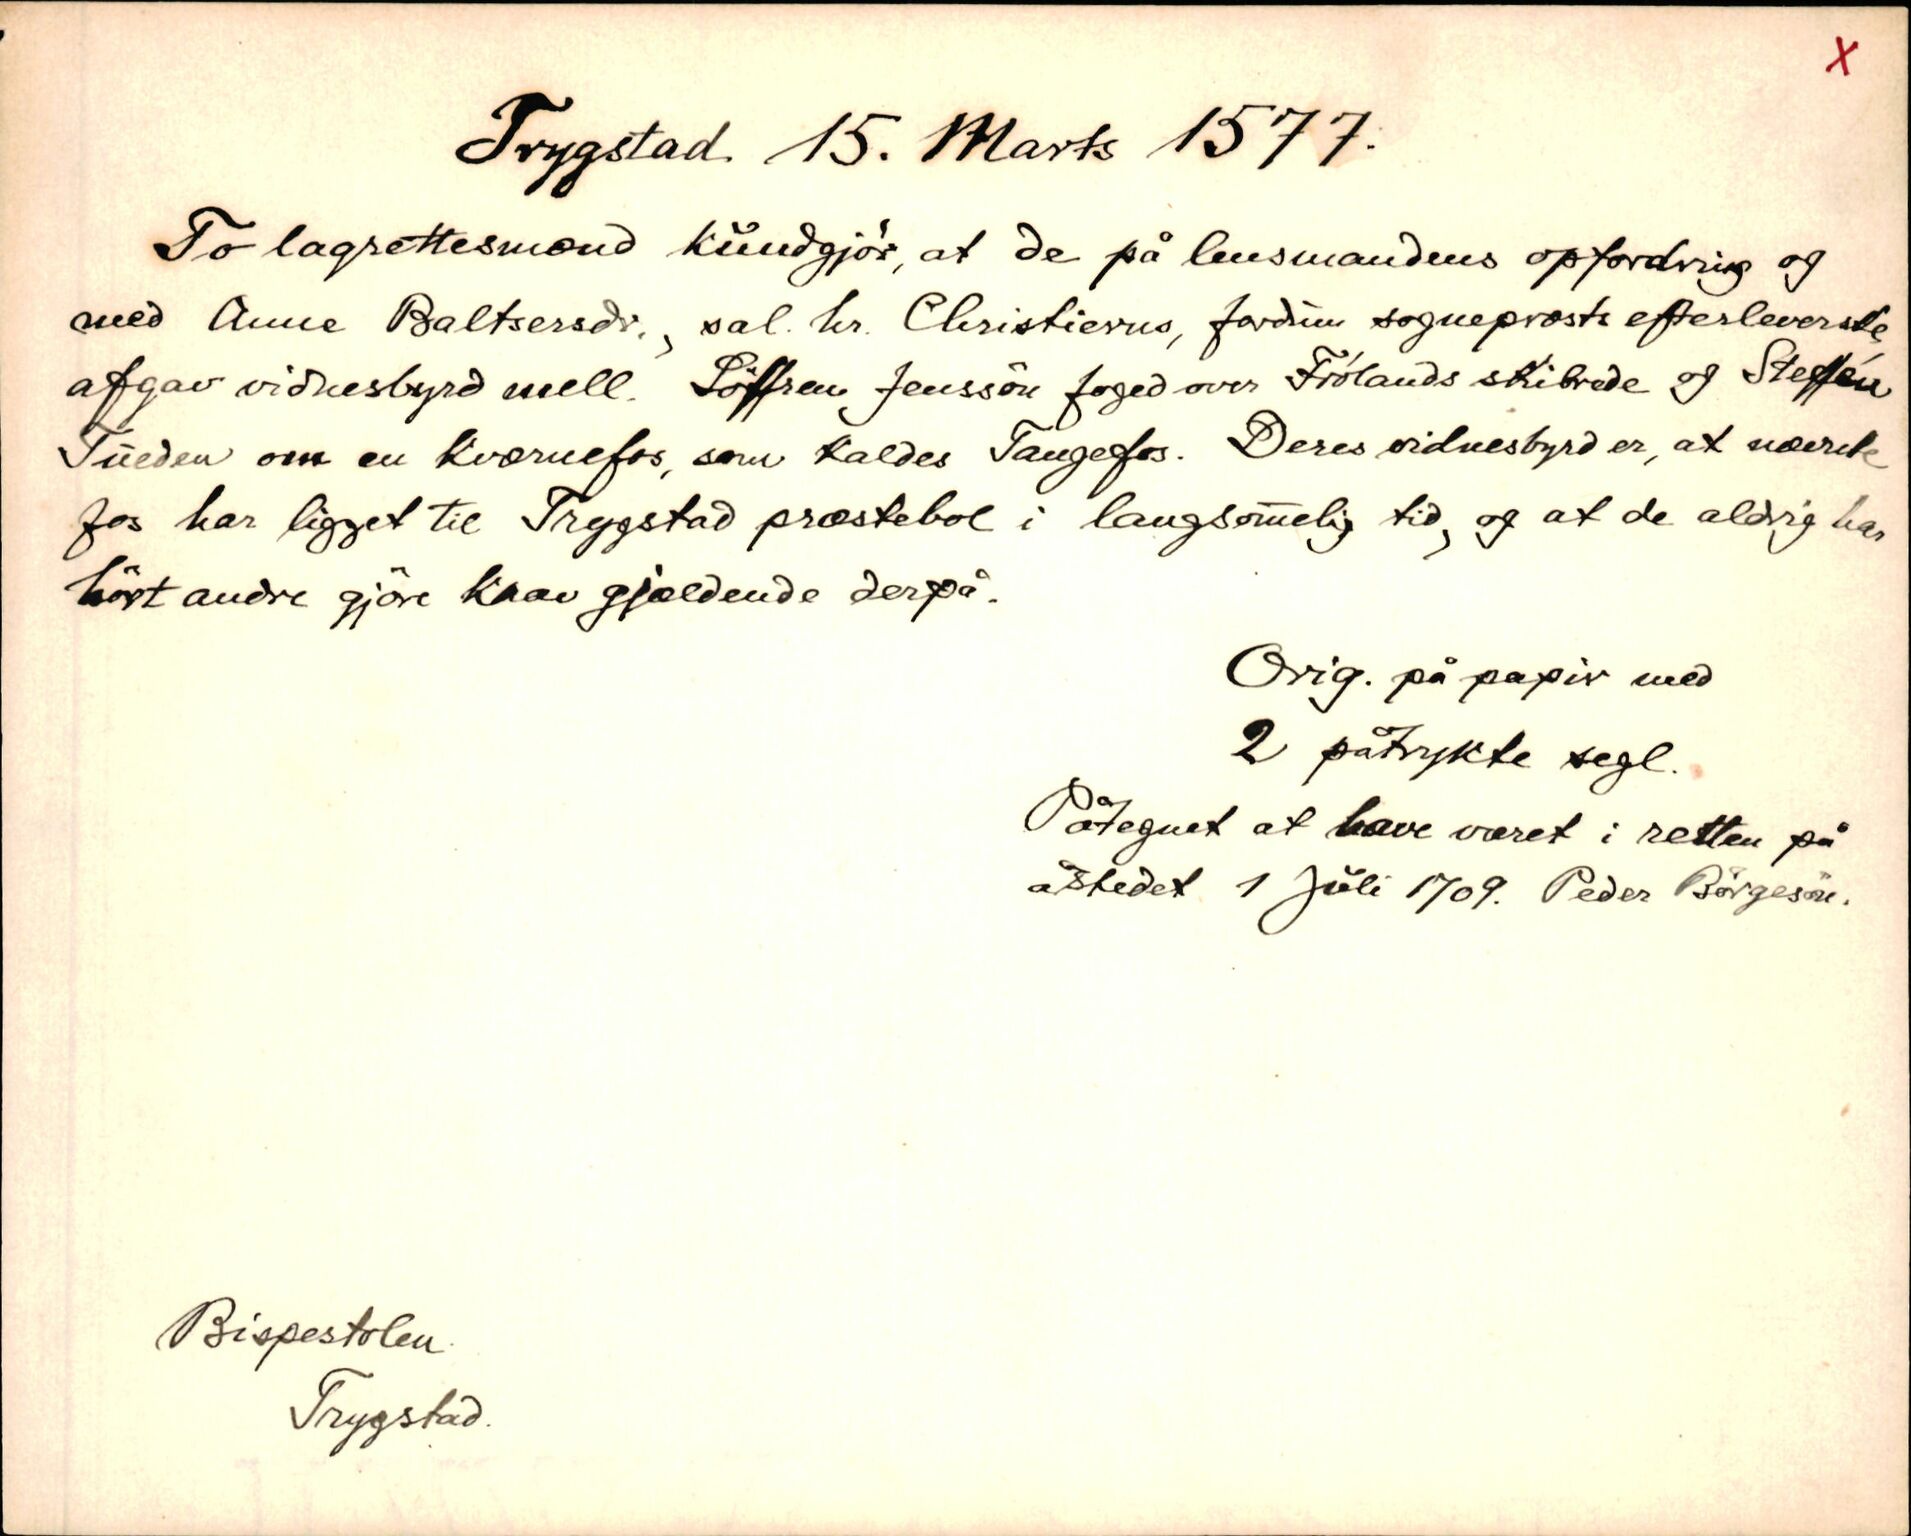 X
Trygstad 15. Marts 1577.
To lagrettesmænd kundgjör, at de på lensmandens opfordring og
med Anne Baltsersdr., sal. hr. Christierns, fordum sogneprests efterleverske,
afgav vidnesbyrd mell. Löffren Jenssön foged over Frölands skibrede og Steffén
Tueden om en kværnefos, som kaldes Tangefos. Deres vidnesbyrd er, at nævnte
fos har ligget til Trygstad præstebol i langsom̅elig tid, og at de aldrig har
hört andre gjöre krav gjældende derpå.
Orig. på papir med
2 påtrykte segl.
Påtegnet at have været i retten på
åstedet 1 Juli 1709. Peder Börgesön.
Bispestolen.
Trygstad.